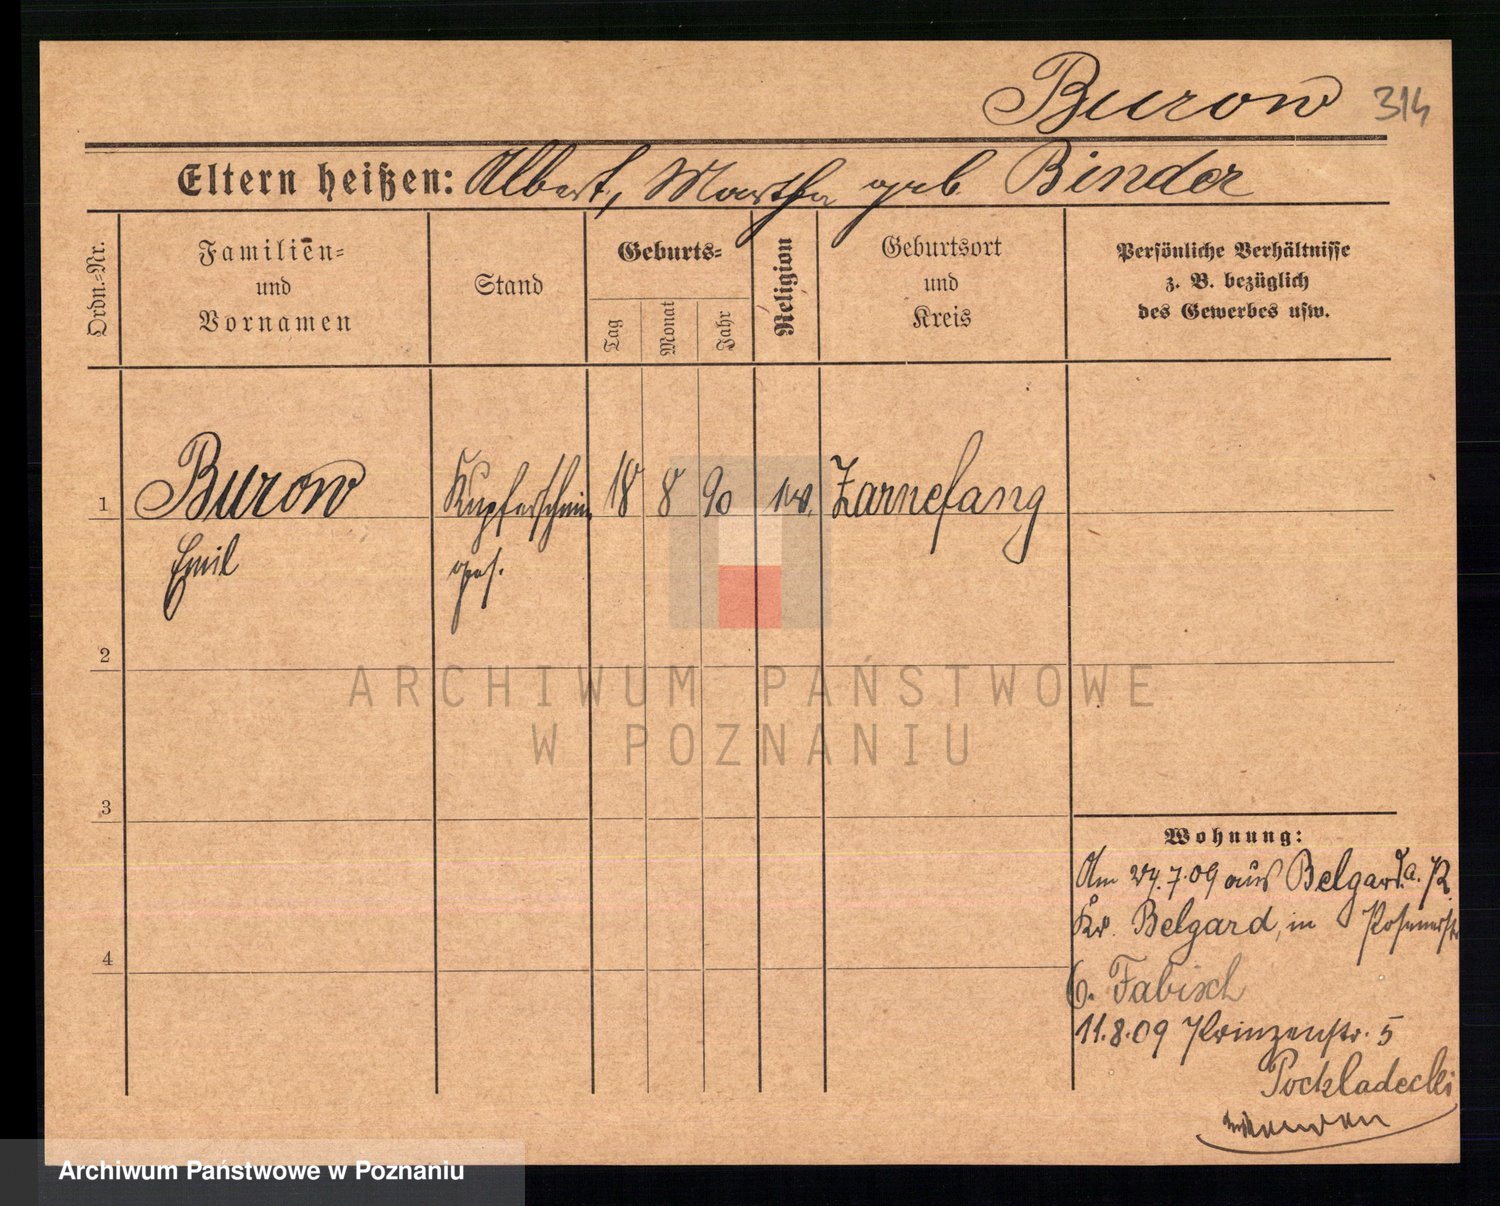 Burow 314
Eltern heißen: Albert, Martha geb Binder
Ordn.-Nr.
Familien-
und
Vornamen
Stand
Geburts-
Tag
Monat
Jahr
Religion
Geburtsort
und
Kreis
Persönliche Verhältnisse
z. B. bezüglich
des Gewerbes usw.
1 Burow Kupferschmied 18 8 90 ev. Zarnefang
Emil ges.
2
ARCHIWUM PAŃSTWOWE
W POZNANIU
3
Wohnung:
Am 27.7.09 aus Belgard a. P.
Kr. Belgard, in Posenerstr
4
6. Fabisch
11.8.09 Prinzenstr. 5
Pockladecki
Archiwum Państwowe w Poznaniu